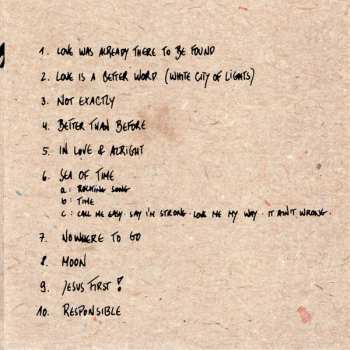 1. LOVE WAS ALREADY THERE TO BE FOUND
2. LOVE IS A BETTER WORD (WHITE CITY OF LIGHTS)
3. NOT EXACTLY
4. BETTER THAN BEFORE
5. IN LOVE & ALRIGHT
6. SEA OF TIME
a: ROCKING SONG
b: TIME
c: CALL ME EASY. SAY I'M STRONG. LOVE ME MY WAY. IT AIN'T WRONG.
7. NOWHERE TO GO
8. MOON
9. JESUS FIRST!
10. RESPONSIBLE